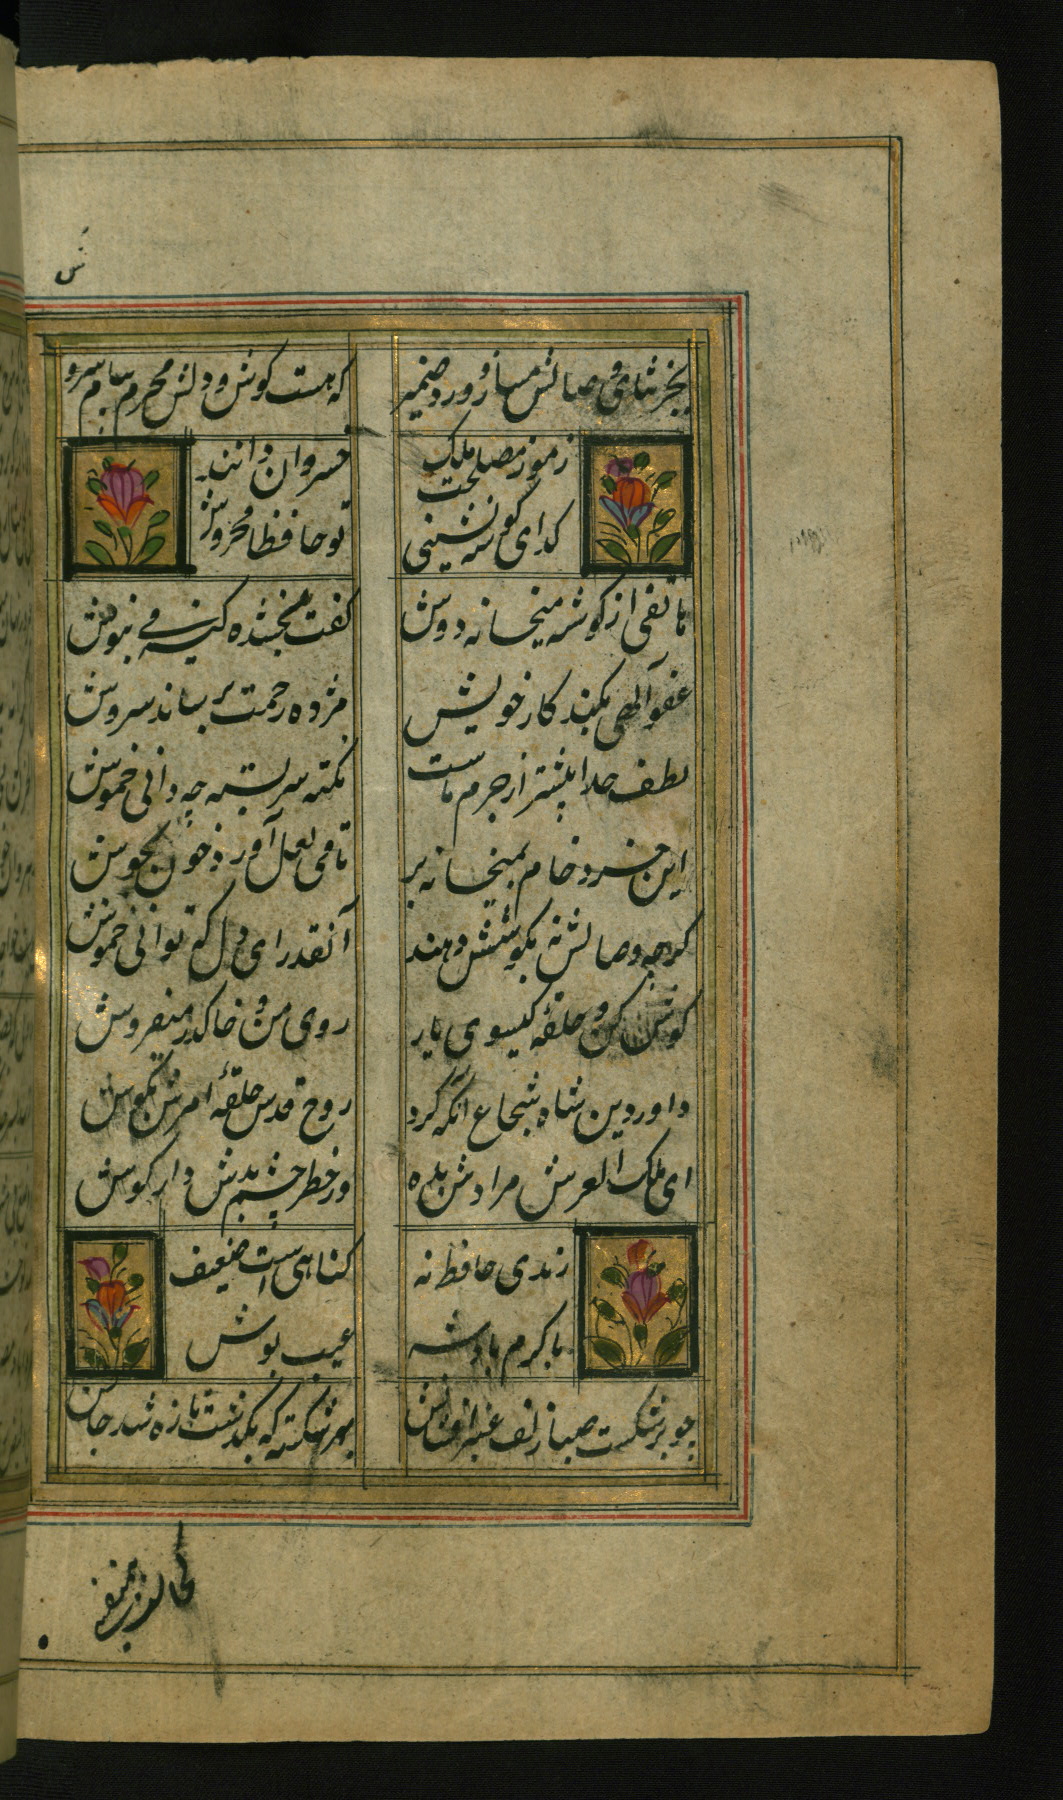 س
بجز ثنای و صالش مساز ورد ضمیر
که هست گوش و دلش محرم پیام سرو
رموز مصلحت ملک
خسروان دانند
گدای گوشه نشینی
تو حافظا مخروش
هاتفی از گوشه میخانه دوش
گفت ببخشنده گنه می بنوش
عفو الهی بکند کار خویش
مژده رحمت برساند سروش
لطف خدا بیشتر از جرم ماست
نکته سربسته چه دانی خموش
این خرد خام بمیخانه بر
تا می لعل آوردش خون بجوش
گرچه وصالش نه بکوشش دهند
آنقدر ای دل که توانی خموش
گوش من و حلقه گیسوی یار
روی من و خاک در میفروش
داور دین شاه شجاع آنکه کرد
روح قدس حلقه امرش بگوش
ای ملک العرش مرادش بده
وز خطر چشم بدش دار گوش
رندی حافظ نه
گناهیست ضعیف
با کرم پادشه
عیب پوش
چو برشکست صبا زلف عنبر افشانش
بهر شکسته که بگذشت تازه شد جانش